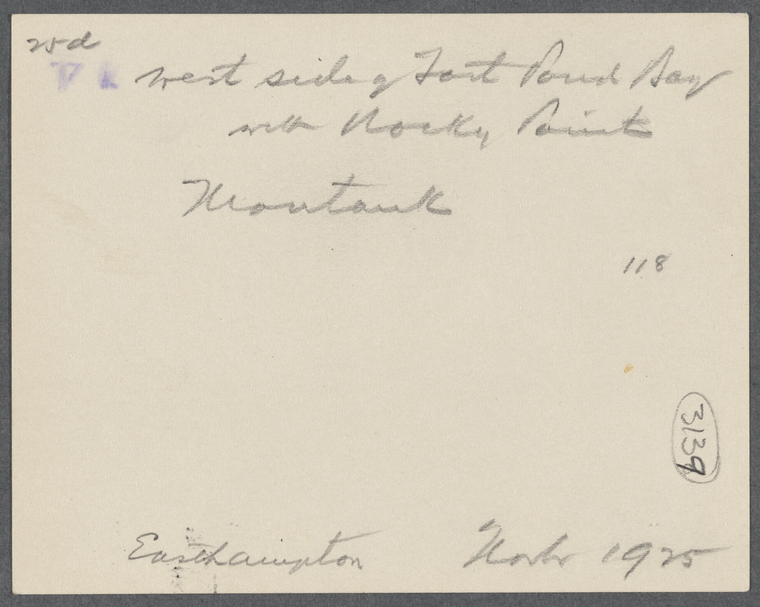 west side of Fort Pond Bay
with Rocky Point
Montauk
118
3139
Easthampton Novbr 1925